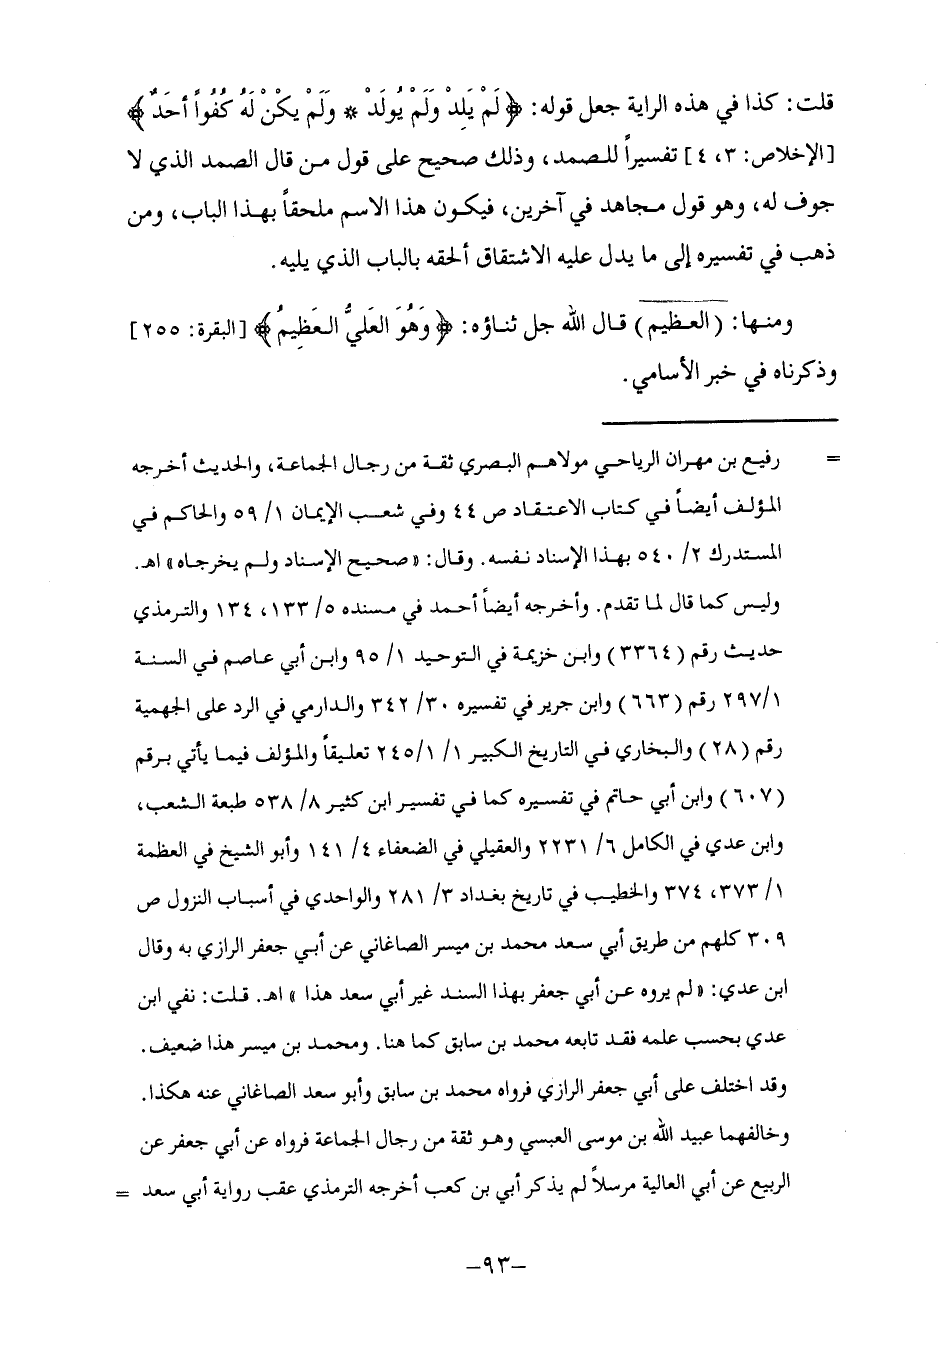 قلت: كذا في هذه الراية جعل قوله: ﴿ لَمْ يَلِدْ وَلَمْ يُولَدْ * وَلَمْ يكُنْ لَهُ كُفُواً أحَدٌ ﴾
[الإخلاص: ٣، ٤] تفسيراً للصمد، وذلك صحيح على قول من قال الصمد الذي لا
جوف له، وهو قول مجاهد في آخرين، فيكون هذا الاسم ملحقاً بهذا الباب، ومن
ذهب في تفسيره إلى ما يدل عليه الاشتقاق ألحقه بالباب الذي يليه.
ومنها: (العظيم) قال الله جل ثناؤه: ﴿ وَهُوَ العَليُّ العَظِيمُ ﴾ [البقرة: ٢٥٥]
وذكرناه في خبر الأسامي.
= رفيع بن مهران الرياحي مولاهم البصري ثقة من رجال الجماعة، والحديث أخرجه
المؤلف أيضاً في كتاب الاعتقاد ص ٤٤ وفي شعب الإيمان ١/ ٥٩ والحاكم في
المستدرك ٢/ ٥٤٠ بهذا الإسناد نفسه. وقال: «صحيح الإسناد ولم يخرجاه» اهـ.
وليس كما قال لما تقدم. وأخرجه أيضاً أحمد في مسنده ٥/ ١٣٣، ١٣٤ والترمذي
حديث رقم (٣٣٦٤) وابن خزيمة في التوحيد ١/ ٩٥ وابن أبي عاصم في السنة
١/ ٢٩٧ رقم (٦٦٣) وابن جرير في تفسيره ٣٠/ ٣٤٢ والدارمي في الرد على الجهمية
رقم (٢٨) والبخاري في التاريخ الكبير ١/ ١/ ٢٤٥ تعليقاً والمؤلف فيما يأتي برقم
(٦٠٧) وابن أبي حاتم في تفسيره كما في تفسير ابن كثير ٨/ ٥٣٨ طبعة الشعب،
وابن عدي في الكامل ٦/ ٢٢٣١ والعقيلي في الضعفاء ٤/ ١٤١ وأبو الشيخ في العظمة
١/ ٣٧٣، ٣٧٤ والخطيب في تاريخ بغداد ٣/ ٢٨١ والواحدي في أسباب النزول ص
٣٠٩ كلهم من طريق أبي سعد محمد بن ميسر الصاغاني عن أبي جعفر الرازي به وقال
ابن عدي: «لم يروه عن أبي جعفر بهذا السند غير أبي سعد هذا» اهـ. قلت: نفي ابن
عدي بحسب علمه فقد تابعه محمد بن سابق كما هنا. ومحمد بن ميسر هذا ضعيف.
وقد اختلف على أبي جعفر الرازي فرواه محمد بن سابق وأبو سعد الصاغاني عنه هكذا.
وخالفهما عبيد الله بن موسى العبسي وهو ثقة من رجال الجماعة فرواه عن أبي جعفر عن
الربيع عن أبي العالية مرسلاً لم يذكر أبي بن كعب أخرجه الترمذي عقب رواية أبي سعد =
-٩٣-